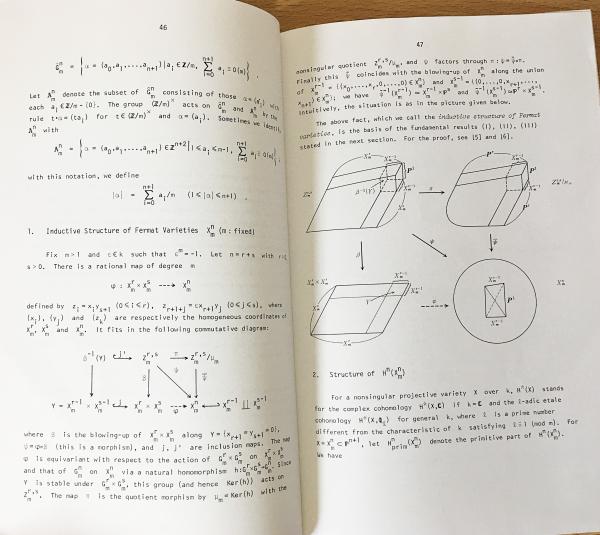 46
G̃ⁿₘ = { α = (a₀,a₁,...,aₙ₊₁) | aᵢ ∈ Z/m, Σⁿ⁺¹ᵢ₌₀ aᵢ ≡ 0(m) } ,
Let Aⁿₘ denote the subset of Ĝⁿₘ consisting of those α=(aᵢ) with
each aᵢ ∈ Z/m - {0}. The group (Z/m)ˣ acts on Ĝⁿₘ and Aⁿₘ by the
rule t·α = (taᵢ) for t ∈ (Z/m)ˣ and α = (aᵢ). Sometimes we identify
Aⁿₘ with
Aⁿₘ = { α = (a₀,a₁,...,aₙ₊₁) ∈ Zⁿ⁺² | 1 ≤ aᵢ ≤ m-1, Σⁿ⁺¹ᵢ₌₀ aᵢ ≡ 0(m) } ,
with this notation, we define
|α| = Σⁿ⁺¹ᵢ₌₀ aᵢ/m (1 ≤ |α| ≤ n+1) .
1. Inductive Structure of Fermat Varieties Xⁿₘ (m : fixed)
Fix m > 1 and ε ∈ k such that εᵐ = -1. Let n = r + s with
s > 0. There is a rational map of degree m
φ : Xʳₘ × Xˢₘ ---> Xⁿₘ
defined by zᵢ = xᵢyₛ₊₁ (0 ≤ i ≤ r), zᵣ₊₁₊ⱼ = εxᵣ₊₁yⱼ (0 ≤ j ≤ s), where
(xᵢ), (yⱼ) and (zₖ) are respectively the homogeneous coordinates of
Xʳₘ, Xˢₘ and Xⁿₘ. It fits in the following commutative diagram:
β⁻¹(Y) j' Zʳ,ˢₘ π Zʳ,ˢₘ/μₘ
β ψ ψ̄
Y = Xʳ⁻¹ₘ × Xˢ⁻¹ₘ j Xʳₘ × Xˢₘ φ Xⁿₘ Xʳ⁻¹ₘ ⊔ Xˢ⁻¹ₘ
where β is the blowing-up of Xʳₘ × Xˢₘ along Y = {xᵣ₊₁ = yₛ₊₁ = 0},
ψ = φ∘β (this is a morphism), and j, j' are inclusion maps. The map
φ is equivariant with respect to the action of Gʳₘ × Gˢₘ on Xʳₘ × Xˢₘ
and that of Gⁿₘ on Xⁿₘ via a natural homomorphism h: Gʳₘ × Gˢₘ → Gⁿₘ. Since
Y is stable under Gʳₘ × Gˢₘ, this group (and hence Ker(h)) acts on
Zʳ,ˢₘ. The map π is the quotient morphism by μₘ = Ker(h) with the
47
nonsingular quotient Zʳ,ˢₘ/μₘ, and ψ factors through π : ψ = ψ̄∘π.
Finally this ψ̄ coincides with the blowing-up of Xⁿₘ along the union
Intuitively, the situation is as in the picture given below.
The above fact, which we call the inductive structure of Fermat
varieties, is the basis of the fundamental results (I), (II), (III)
stated in the next section. For the proof, see [5] and [6].
β⁻¹(Y)
P¹
π
P¹
β
ψ
ψ̄
Y
φ
P¹
2. Structure of Hⁿ(Xⁿₘ)
For a nonsingular projective variety X over k, Hⁿ(X) stands
for the complex cohomology Hⁿ(X,C) if k = C and the ℓ-adic etale
cohomology Hⁿ(X,Qℓ) for general k, where ℓ is a prime number
different from the characteristic of k satisfying ℓ ≡ 1 (mod m). For
X = Xⁿₘ ⊂ Pⁿ⁺¹, let Hⁿprim(Xⁿₘ) denote the primitive part of Hⁿ(Xⁿₘ).
We have